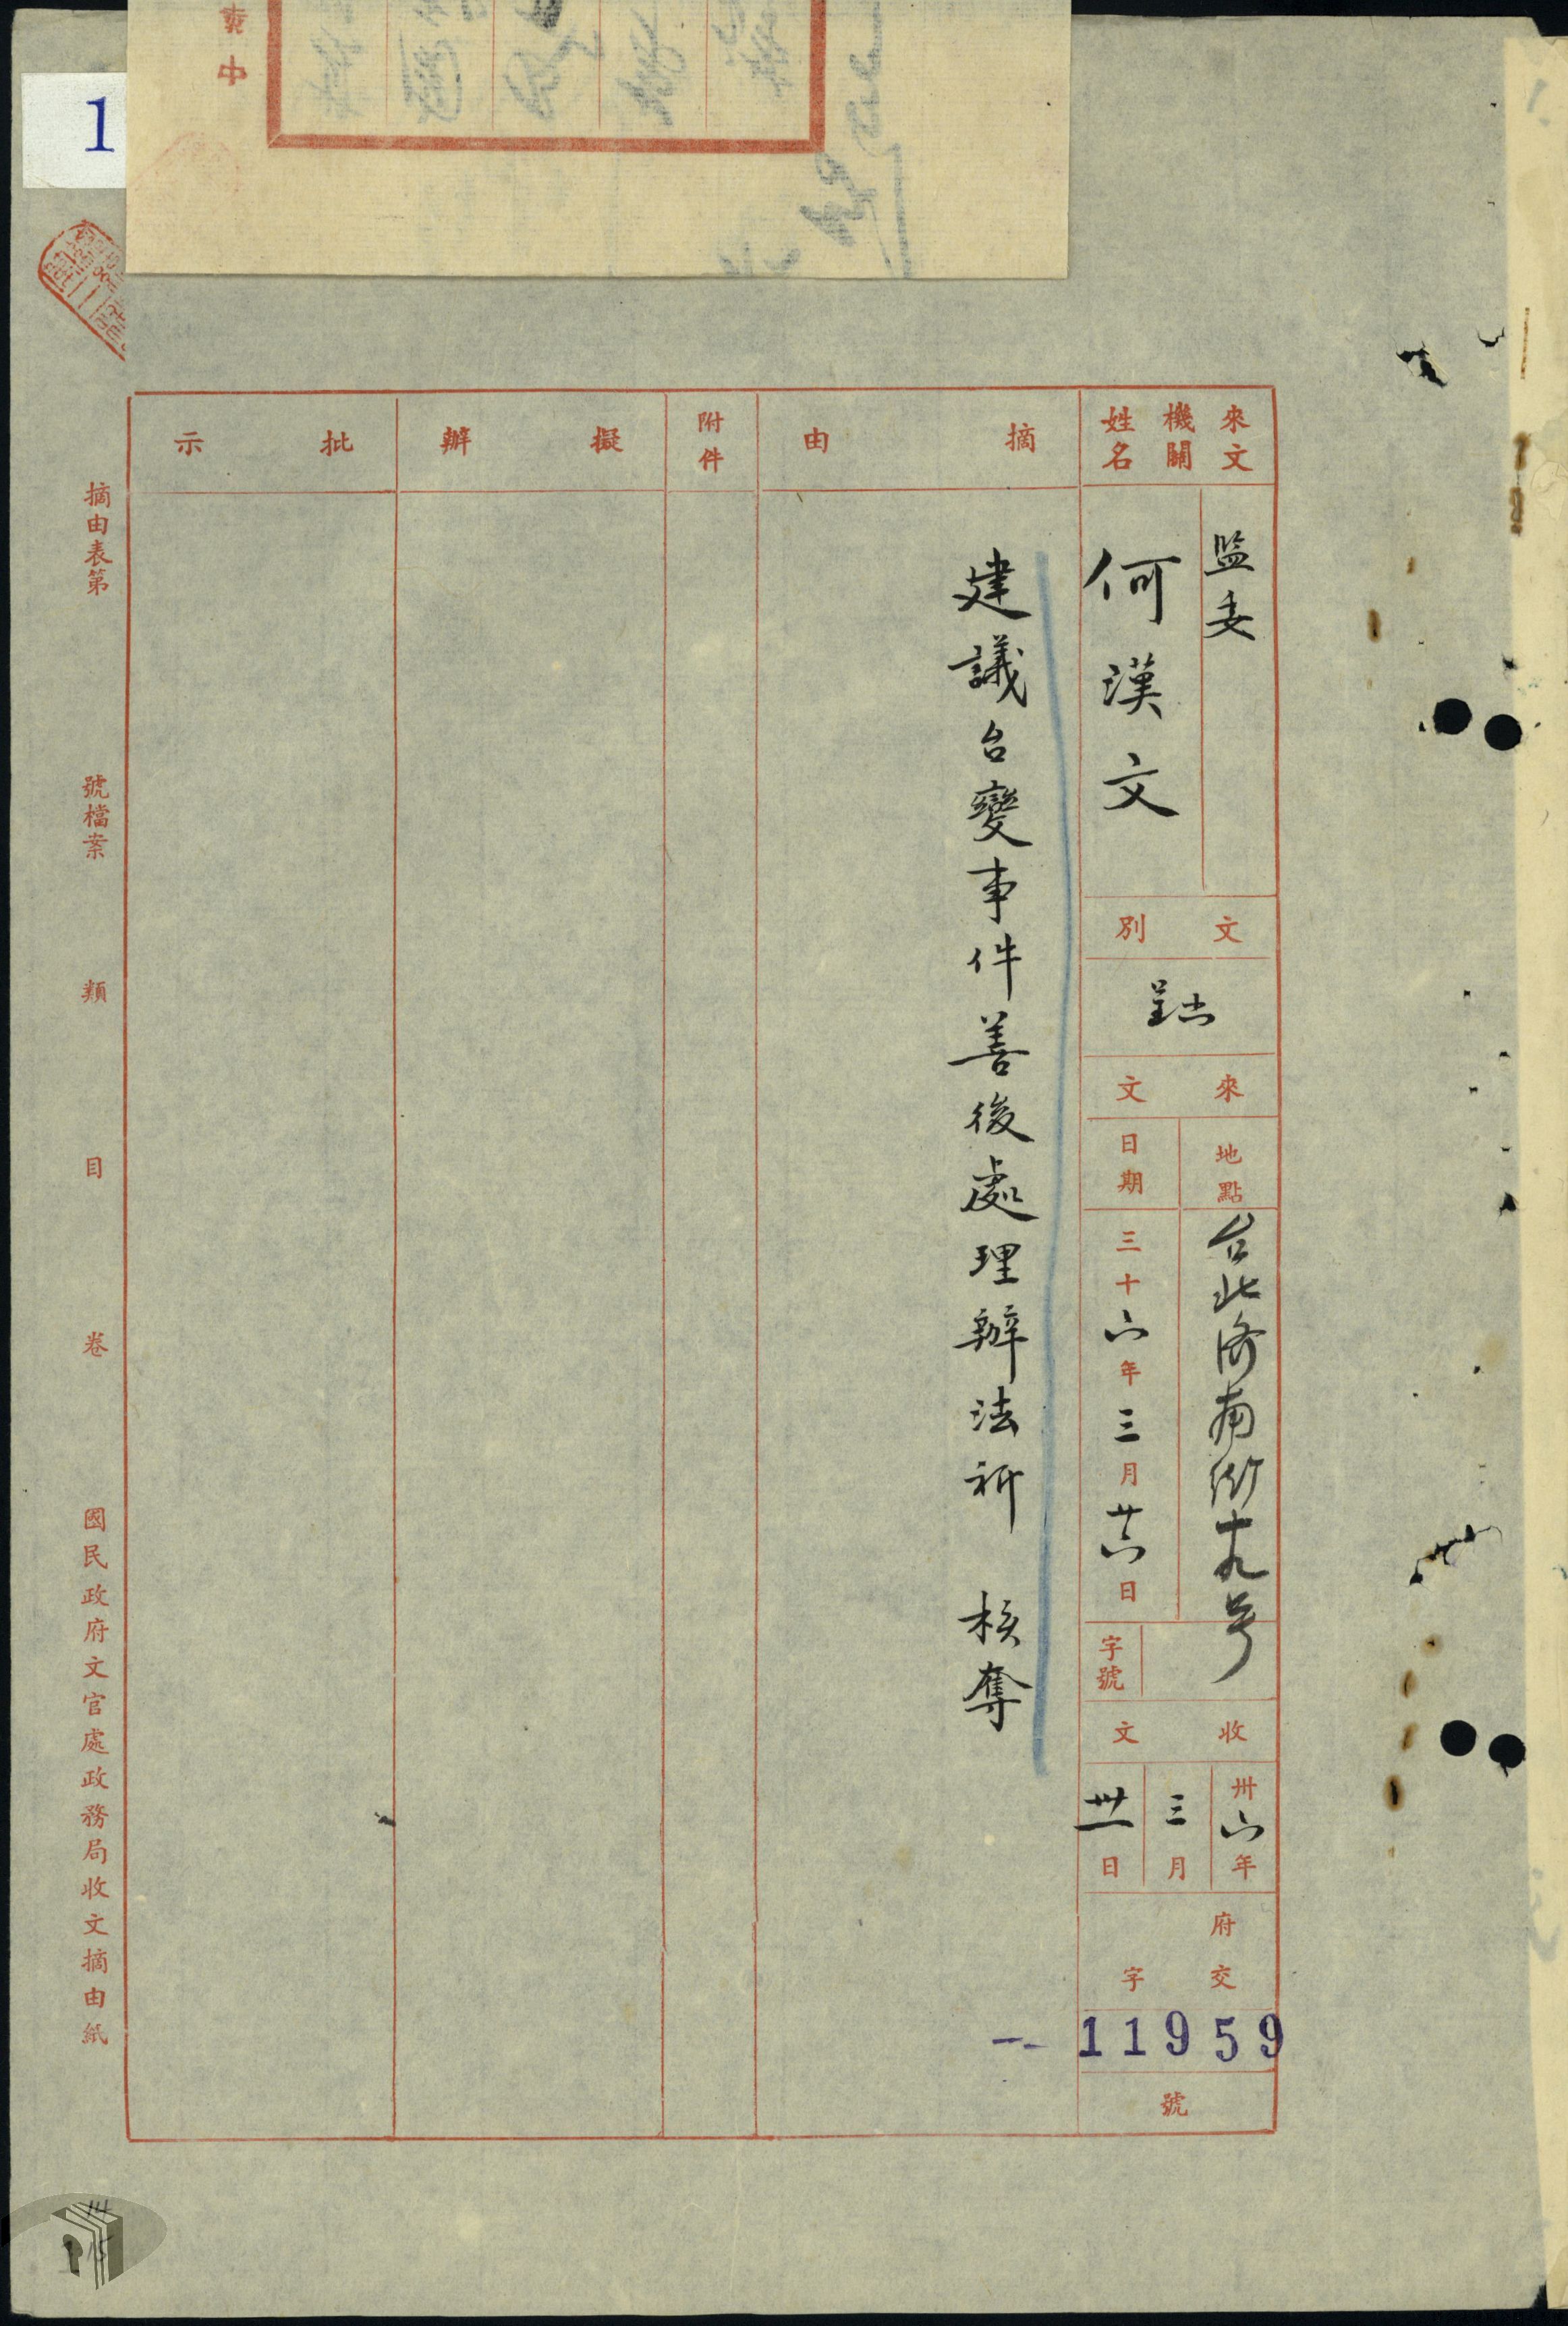 1
來文
機關
姓名
監委
何漢文
文別
呈
來文
地點
台北濟南街十九号
日期
三十六年三月廿六日
字號
收文
卅六年
三月
卅一日
府交
字
11959
號
摘由
建議台變事件善後處理辦法祈 核奪
附件
擬辦
批示
摘由表第 號檔案 類 目 卷 國民政府文官處政務局收文摘由紙